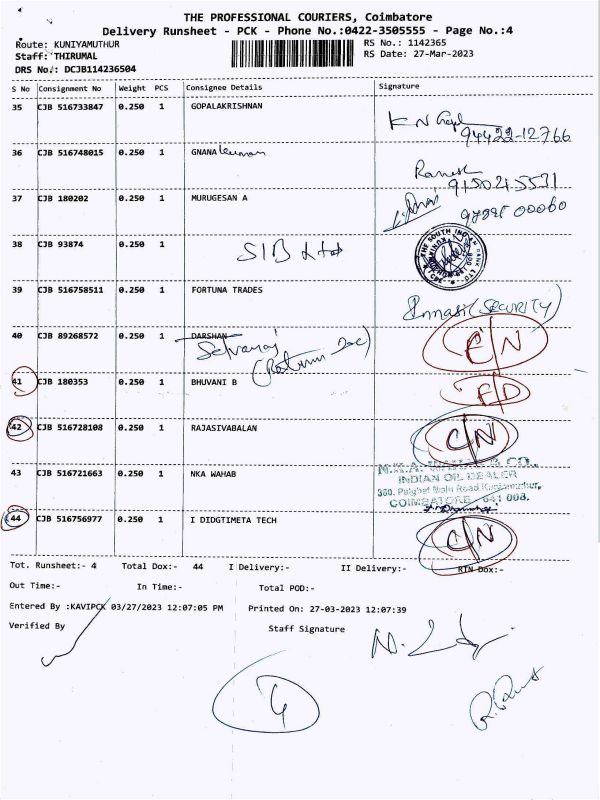 THE PROFESSIONAL COURIERS, Coimbatore
Delivery Runsheet - PCK - Phone No.:0422-3505555 - Page No.:4
Route: KUNIYAMUTHUR
RS No.: 1142365
Staff: THIRUMAL
RS Date: 27-Mar-2023
DRS No.: DCJB114236504
S No Consignment No Weight PCS Consignee Details Signature
35 CJB 516733847 0.250 1 GOPALAKRISHNAN
K N
94422-12766
36 CJB 516748015 0.250 1 GNANA kumar
Ramesh
9150245531
37 CJB 180202 0.250 1 MURUGESAN A
00060
38 CJB 93874 0.250 1 SIB Ltd
THE SOUTH INDIAN BANK LTD
39 CJB 516758511 0.250 1 FORTUNA TRADES
(SECURITY)
40 CJB 89268572 0.250 1 DARSHAN
Selvaraj
(Return Doc)
C/N
41 CJB 180353 0.250 1 BHUVANI B
F/D
42 CJB 516728108 0.250 1 RAJASIVABALAN
C/N
43 CJB 516721663 0.250 1 NKA WAHAB
N.K.A. WAHAB & CO.,
INDIAN OIL DEALER
360, Palghat Main Road Kuniamuthur,
COIMBATORE - 641 008.
44 CJB 516756977 0.250 1 I DIDGTIMETA TECH
C/N
Tot. Runsheet:- 4 Total Dox:- 44 I Delivery:- II Delivery:- RTN Dox:-
Out Time:- In Time:- Total POD:-
Entered By :KAVIPCK 03/27/2023 12:07:05 PM Printed On: 27-03-2023 12:07:39
Verified By Staff Signature
4